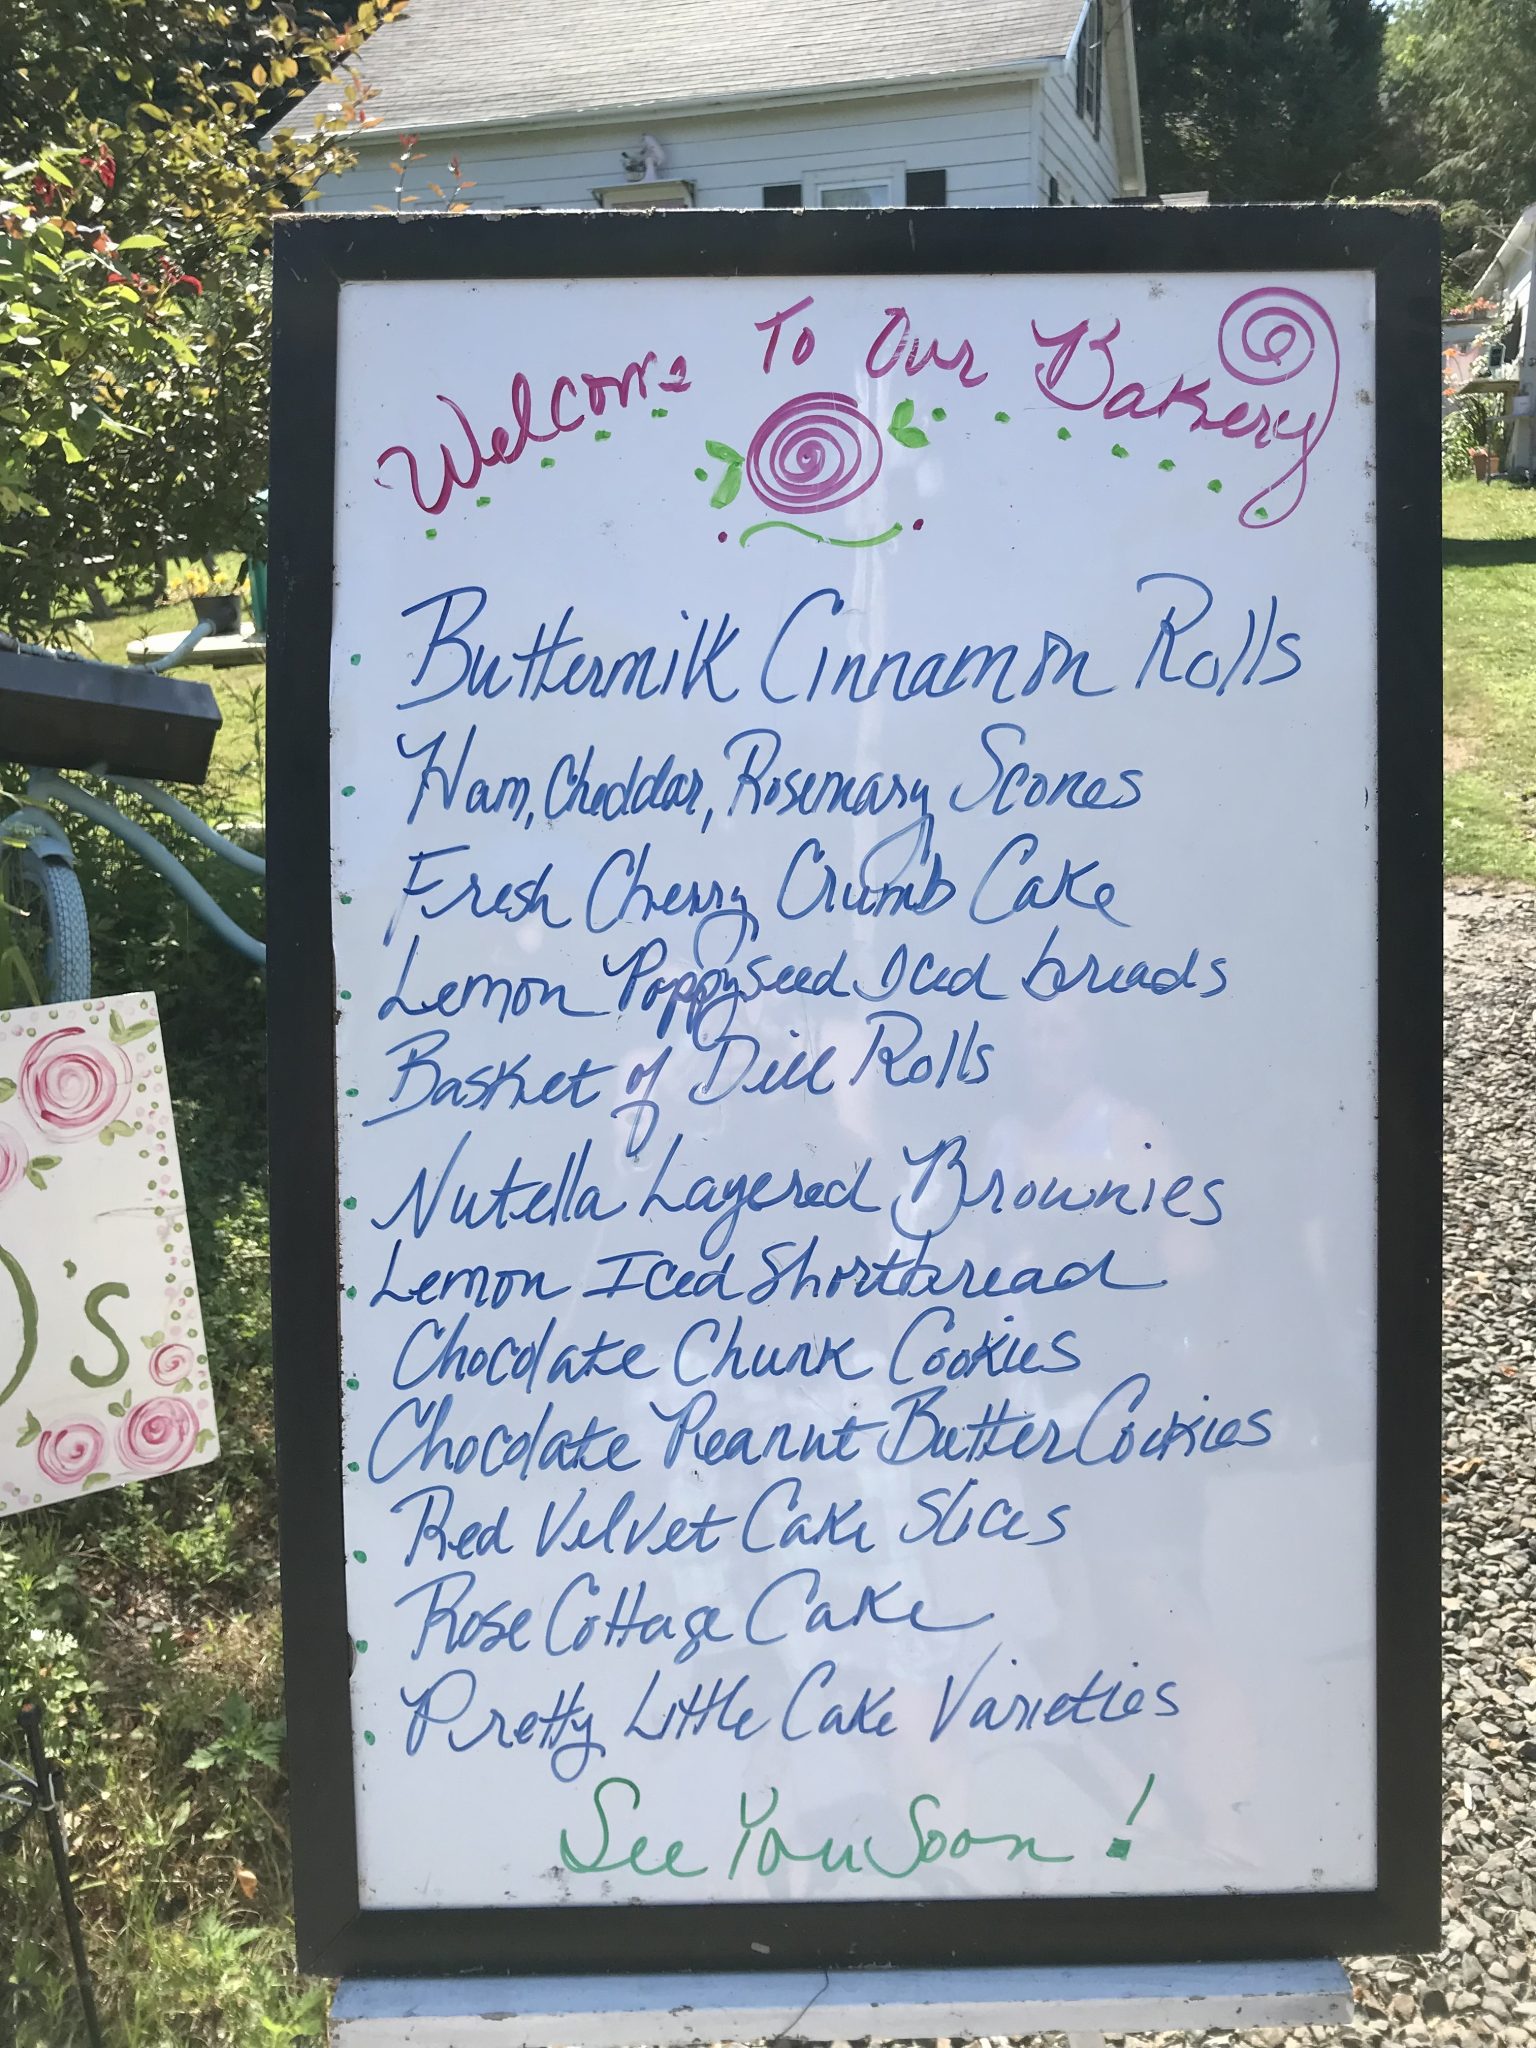 Welcome To Our Bakery
Buttermilk Cinnamon Rolls
Ham, Cheddar, Rosemary Scones
Fresh Cherry Crumb Cake
Lemon Poppyseed Iced breads
Basket of Dill Rolls
Nutella Layered Brownies
Lemon Iced Shortbread
Chocolate Chunk Cookies
Chocolate Peanut Butter Cookies
Red Velvet Cake Slices
Rose Cottage Cake
Pretty Little Cake Varieties
See You Soon!
's